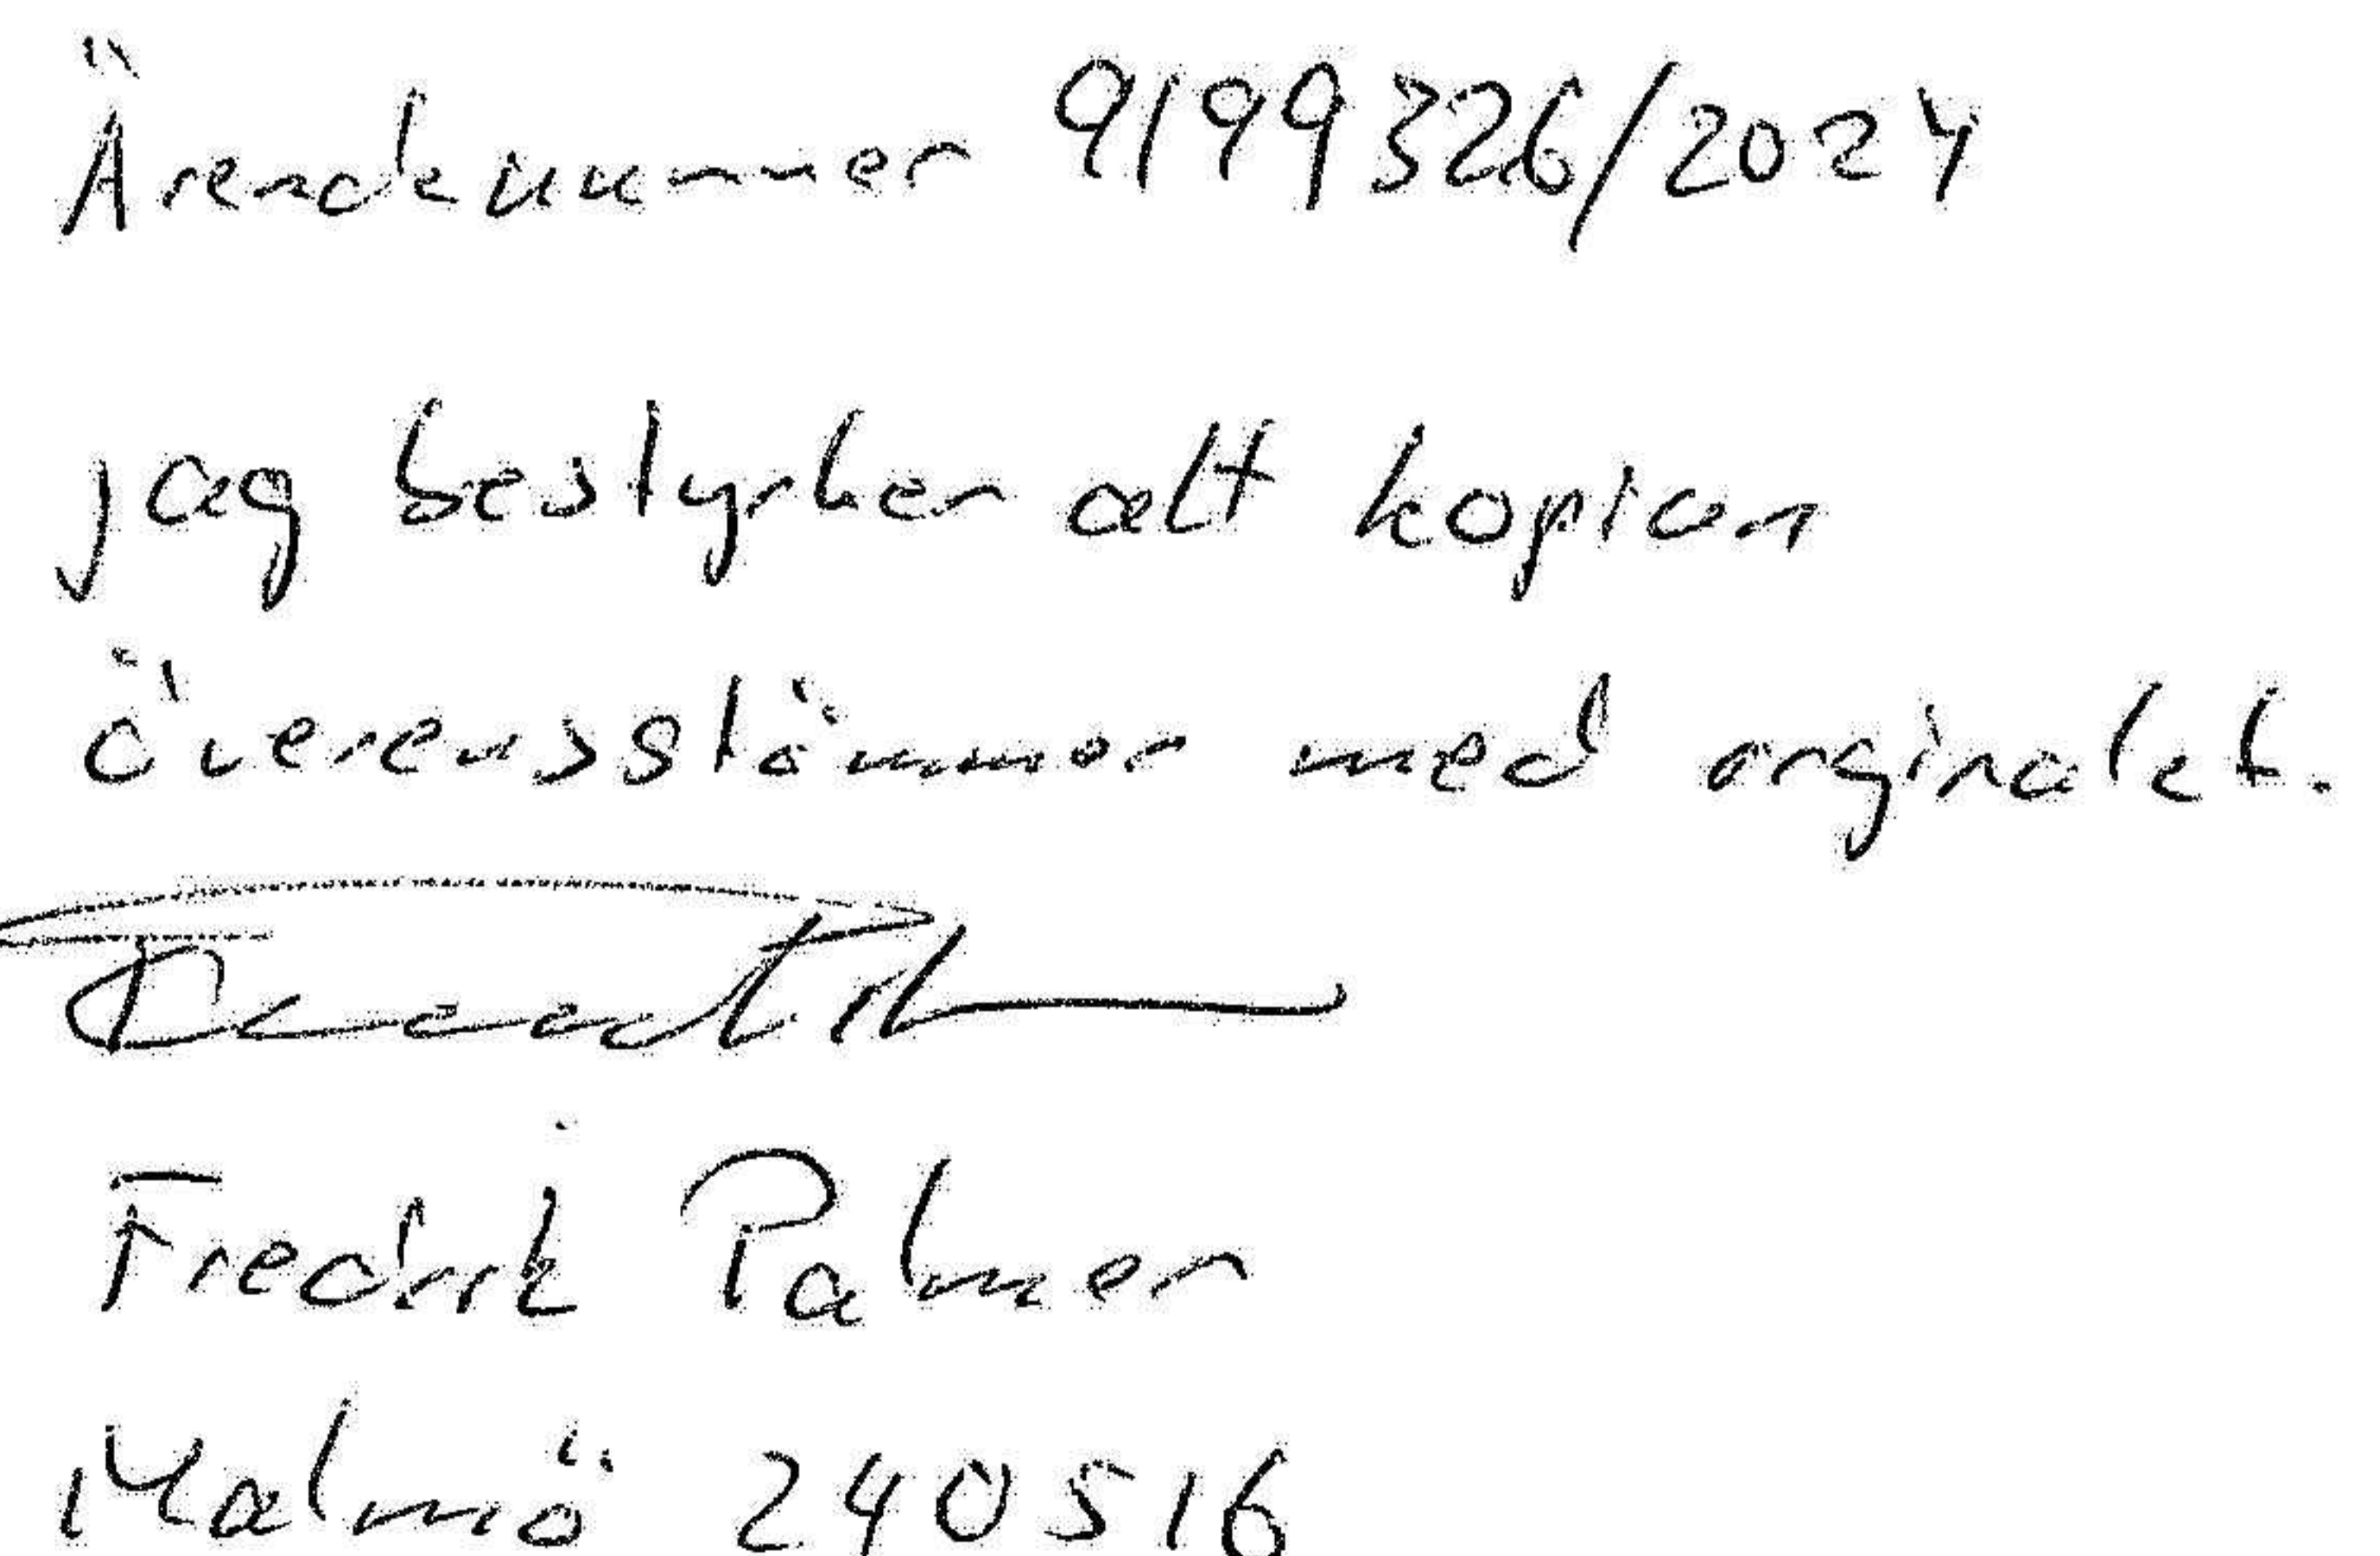 Ärendenummer 9199326/2024
jag bestyrker att kopian
överensstämmer med orginalet.
Fredrik Palmer
Malmö 240516